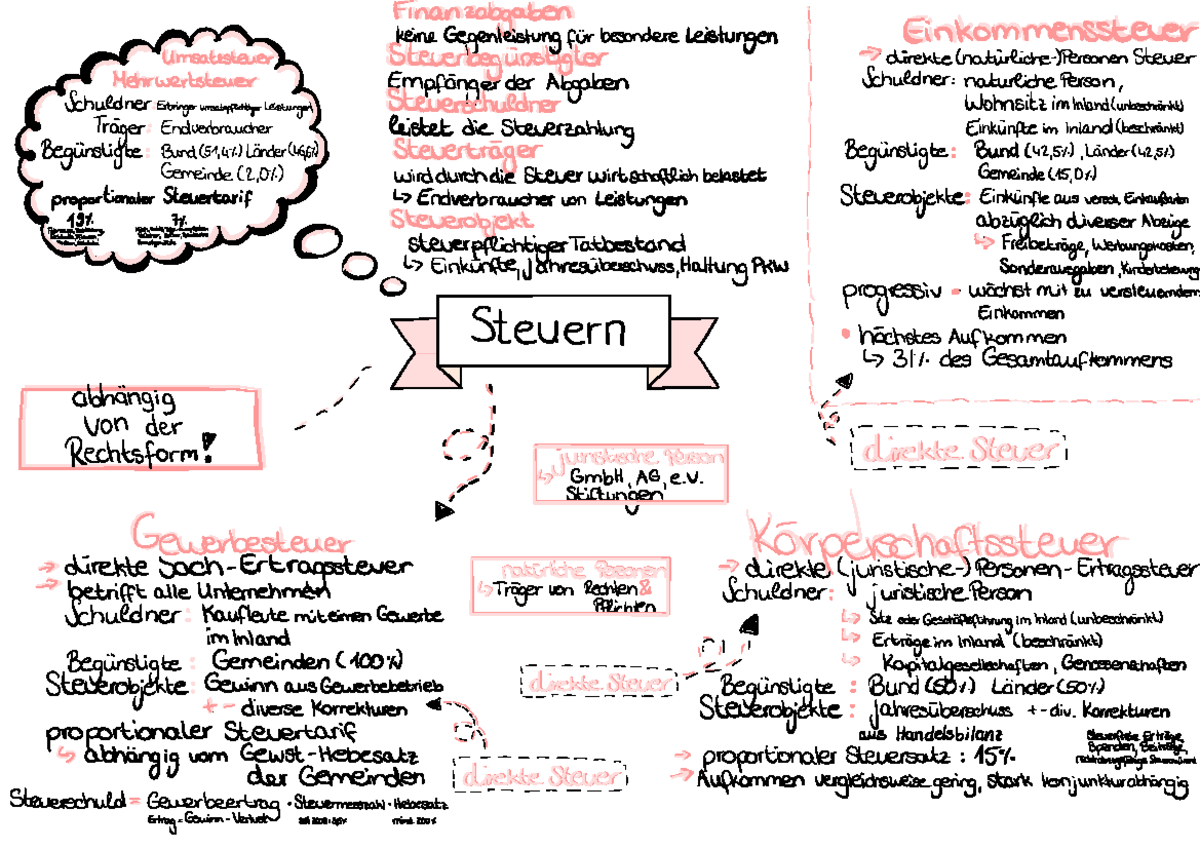 Umsatzsteuer
Mehrwertsteuer
Schuldner Erbringer umsatzpflichtiger Leistungen
Träger: Endverbraucher
Begünstigte: Bund (51,4%) Länder (46,6%)
Gemeinde (2,0%)
proportionaler Steuertarif
19% 7%
Finanzabgaben
keine Gegenleistung für besondere Leistungen
Steuerbegünstigter
Empfänger der Abgaben
Steuerschuldner
leistet die Steuerzahlung
Steuerträger
wird durch die Steuer wirtschaftlich belastet
↳ Endverbraucher von Leistungen
Steuerobjekt
steuerpflichtiger Tatbestand
↳ Einkünfte, Jahresüberschuss, Haltung PKW
Einkommenssteuer
→ direkte (natürliche-) Personen Steuer
Schuldner: natürliche Person,
Wohnsitz im Inland (unbeschränkt)
Einkünfte im Inland (beschränkt)
Begünstigte: Bund (42,5%), Länder (42,5%)
Gemeinde (15,0%)
Steuerobjekte: Einkünfte aus versch.
abzüglich diverser Abzüge
↳ Freibeträge, Werbungskosten,
Sonderausgaben,
progressiv • wächst mit zu versteuerndem
Einkommen
• höchstes Aufkommen
↳ 31% des Gesamtaufkommens
Steuern
abhängig
von der
Rechtsform!
direkte Steuer
juristische Person
↳ GmbH, AG, e.V.
Stiftungen
natürliche Personen
↳ Träger von Rechten &
Pflichten
direkte Steuer
Gewerbesteuer
→ direkte Sach-Ertragssteuer
→ betrifft alle Unternehmen
Schuldner: Kaufleute mit einem Gewerbe
im Inland
Begünstigte: Gemeinden (100%)
Steuerobjekte: Gewinn aus Gewerbebetrieb
+ - diverse Korrekturen
proportionaler Steuertarif
↳ abhängig vom Gewst-Hebesatz
der Gemeinden
Steuerschuld = Gewerbeertrag · Steuermesszahl · Hebesatz
Ertrag = Gewinn - Verlust mind. 200%
direkte Steuer
Körperschaftssteuer
→ direkte (juristische-) Personen-Ertragssteuer
Schuldner: juristische Person
↳ Sitz oder Geschäftsführung im Inland (unbeschränkt)
↳ Erträge im Inland (beschränkt)
↳ Kapitalgesellschaften, Genossenschaften
Begünstigte: Bund (50%) Länder (50%)
Steuerobjekte: Jahresüberschuss + - div. Korrekturen
aus Handelsbilanz
Steuerfreie Erträge,
Spenden, Beiträge,
→ proportionaler Steuersatz: 15%
→ Aufkommen vergleichsweise gering, stark konjunkturabhängig